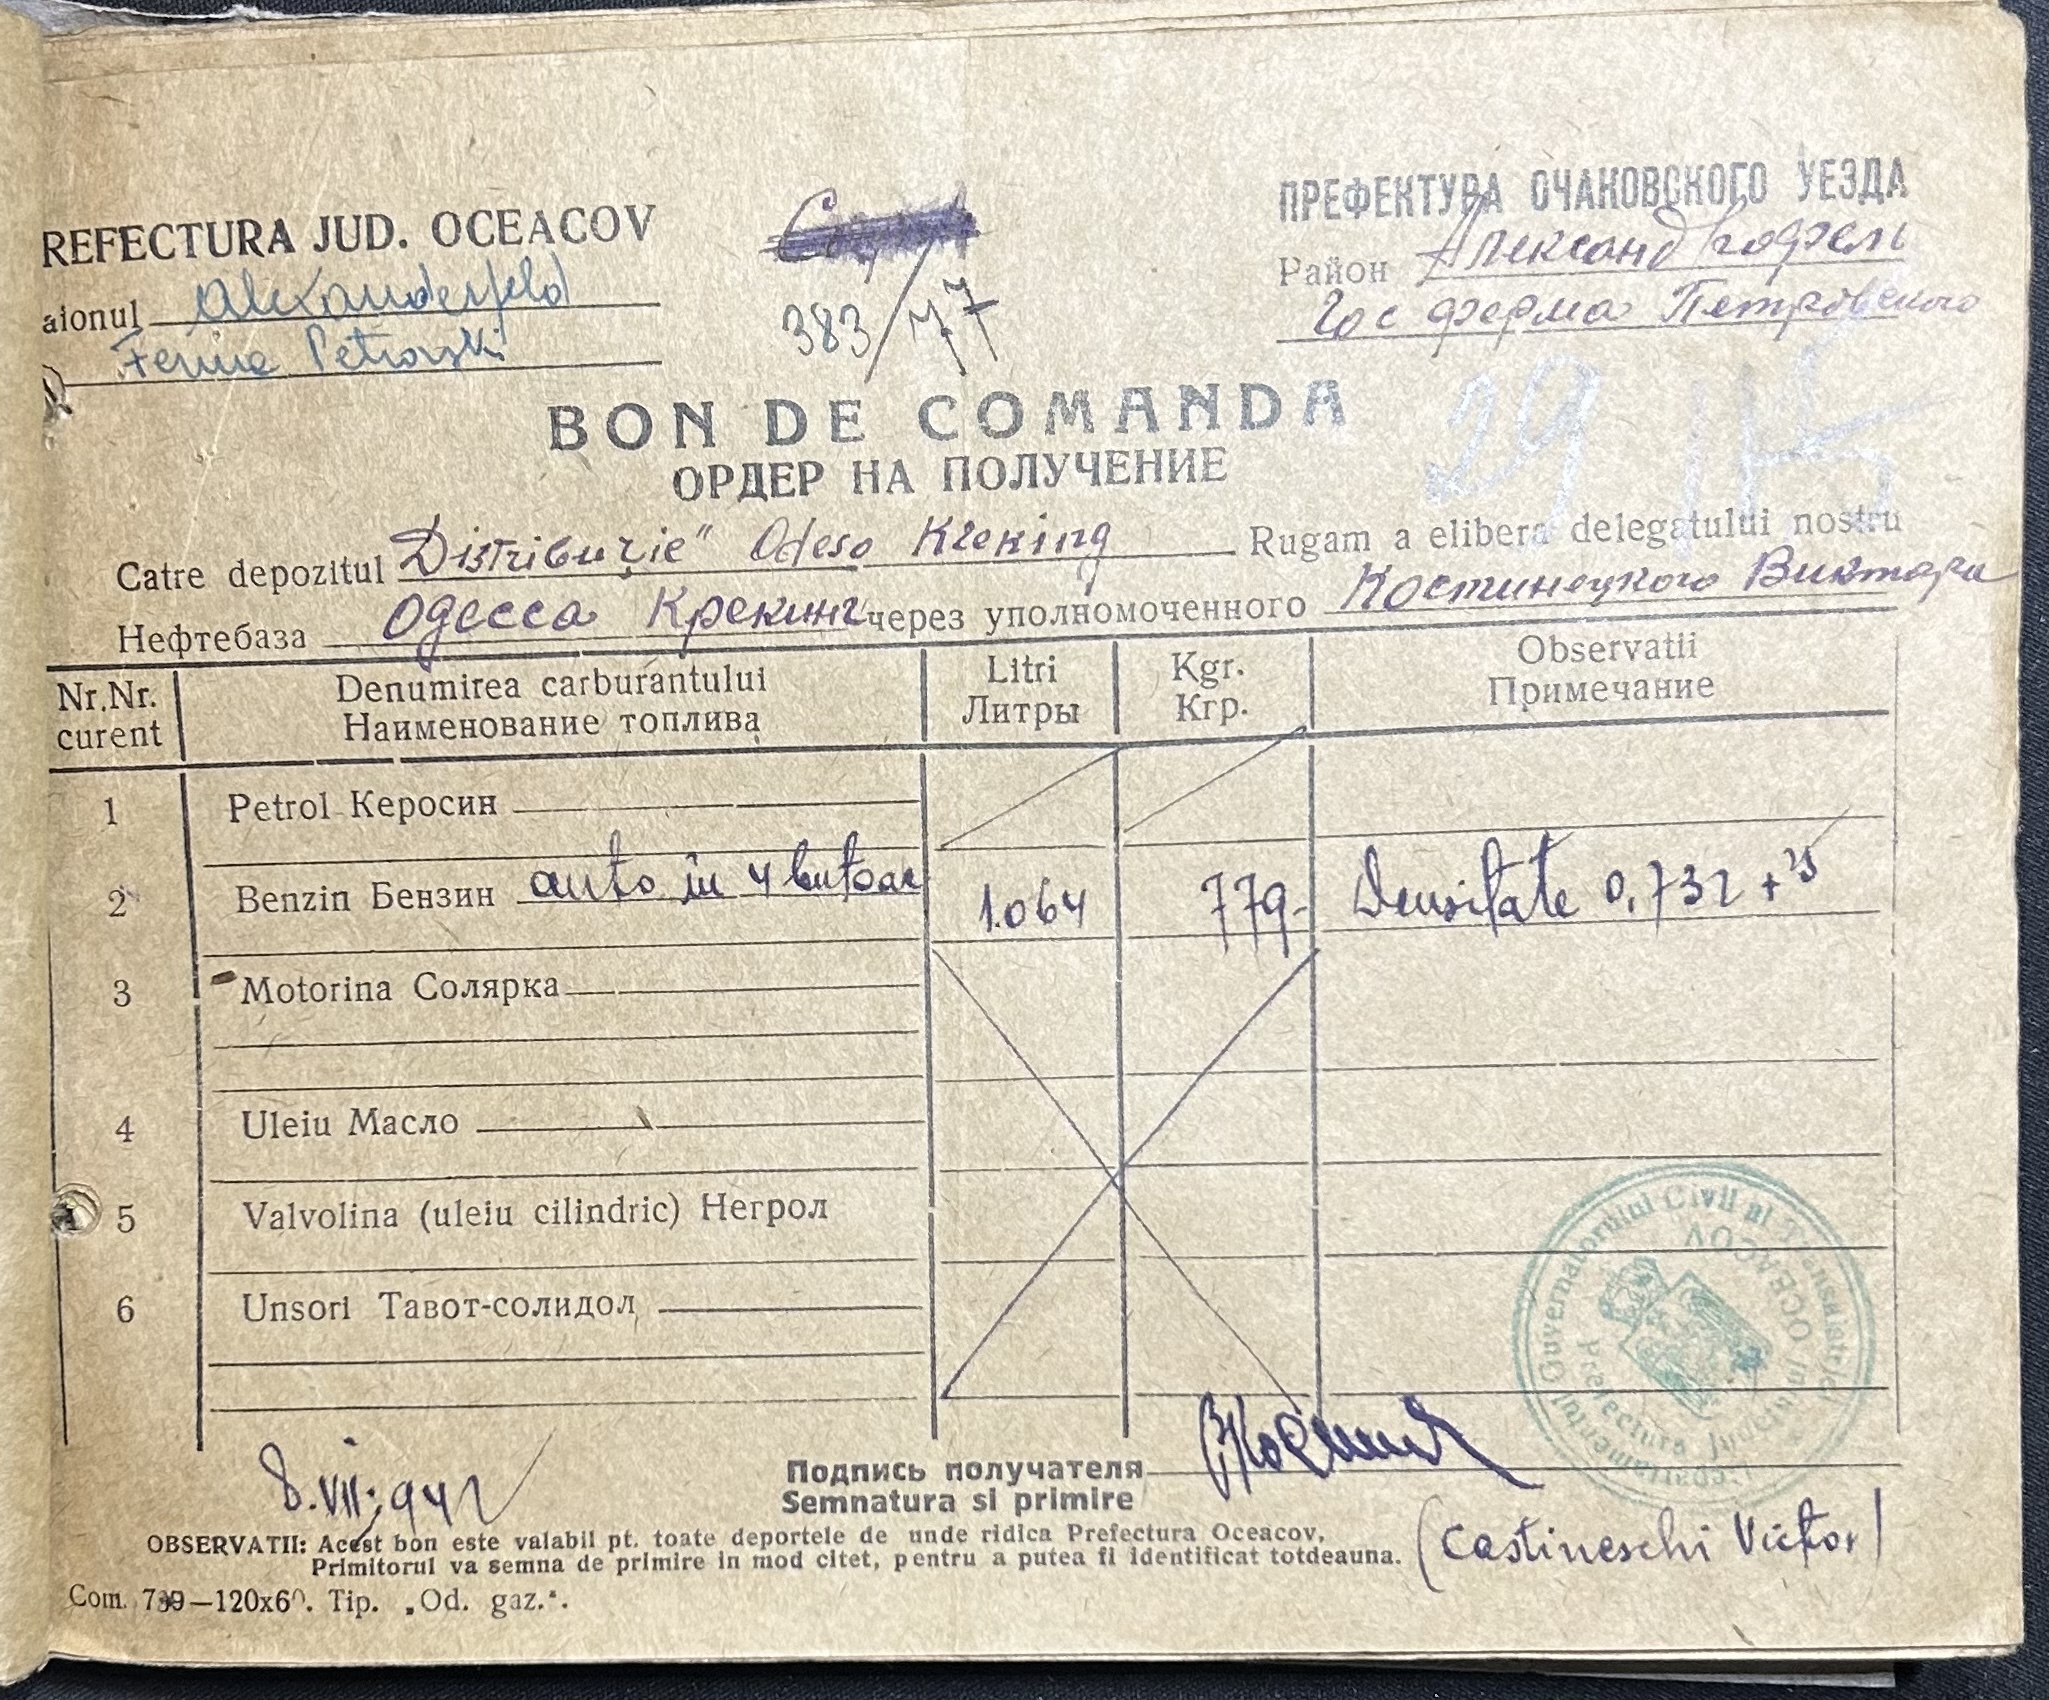 REFECTURA JUD. OCEACOV
aionul Alexanderfeld
Ferma Petrovski
383/77
ПРЕФЕКТУРА ОЧАКОВСКОГО УЕЗДА
Район Александрфель
Гос ферма Петровского
29
BON DE COMANDA
ОРДЕР НА ПОЛУЧЕНИЕ
Catre depozitul Distribuţie" Odesa Kreking Rugam a elibera delegatului nostru
Нефтебаза Одесса Крекинг через уполномоченного Костинецкого Виктора
Nr.Nr. curent Denumirea carburantului Наименование топлива Litri Литры Kgr. Кгр. Observatii Примечание
1 Petrol Керосин
2 Benzin Бензин auto în 4 butoae 1.064 779- Densitate 0,732 +25
3 Motorina Солярка
4 Uleiu Масло
5 Valvolina (uleiu cilindric) Негрол
6 Unsori Тавот-солидол
Guvernamantul Civil al Transnistriei
Prefectura Judetului OCEACOV
8.VII.942
Подпись получателя
Semnatura si primire
(Castineschi Victor)
OBSERVATII: Acest bon este valabil pt. toate deportele de unde ridica Prefectura Oceacov,
Primitorul va semna de primire in mod citet, pentru a putea fi identificat totdeauna.
Com. 739—120x60. Tip. „Od. gaz.".